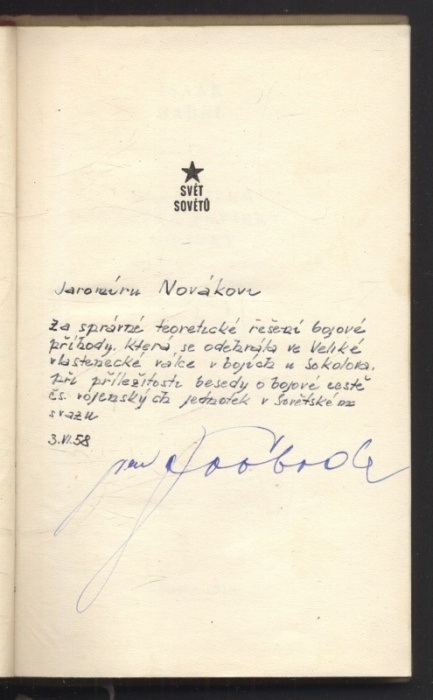 SVĚT
SOVĚTŮ
Jaromíru Novákovi
Za správné teoretické řešení bojové
příhody, která se odehrála ve Veliké
vlastenecké válce v bojích u Sokolova.
Při příležitosti besedy o bojové cestě
čs. vojenských jednotek v Sovětském
svazu
3.VI.58
Svoboda